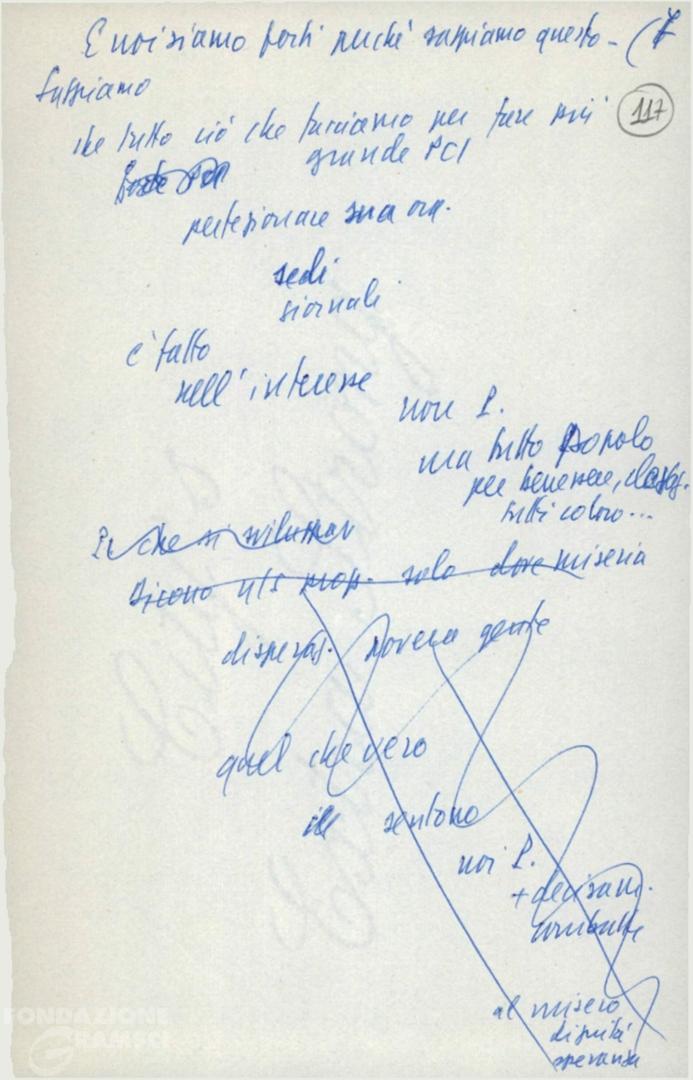 E noi siamo forti perché sappiamo questo - (
Sappiamo
117
che tutto ciò che facciamo per fare più
grande PCI
perfezionare sua org.
sedi
giornali
è fatto
nell'interesse
non P.
ma tutto popolo
per benessere,
tutti coloro...
che si sviluppav
Dicono n/s prop. solo dove miseria
disperaz. povera gente
quel che vero
sentono
noi P.
+ decisam.
combatte
al misero
dignità
speranza
FONDAZIONE
GRAMSCI